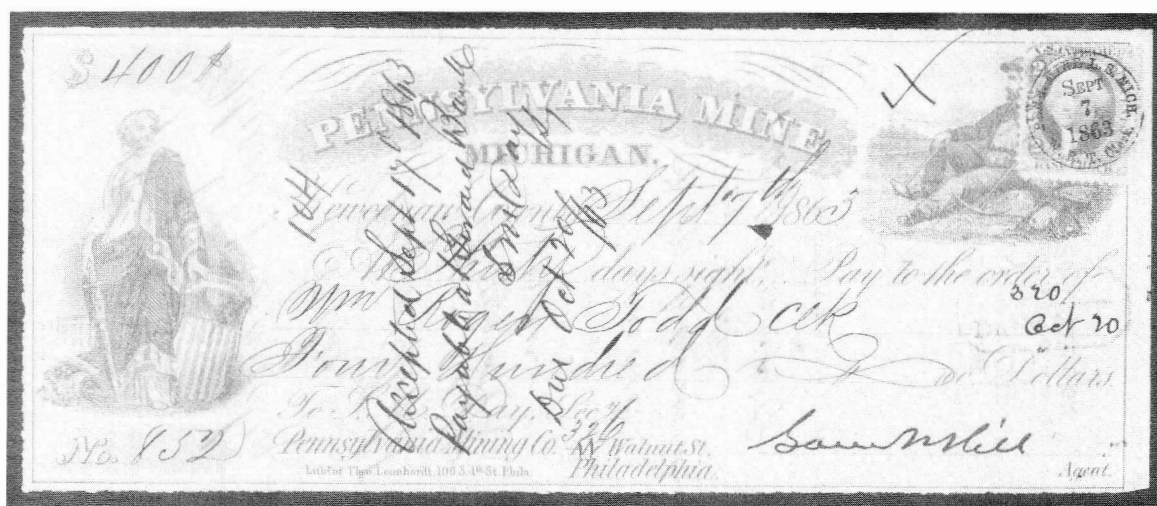 $ 400 $
PENNSYLVANIA MINE
MICHIGAN.
104
Keweenaw County, Sept 7th 1863
At Thirty days sight, Pay to the order of
Wm Roger Todd Clk
Four Hundred Dollars.
To S. M. Day, Secy
Pennsylvania Mining Co. 326 Walnut St.
Philadelphia.
No. 852
Saml W Hill
Agent.
Lith. of Theo. Leonhardt, 109 S. 4th St. Phila.
Accepted Sept 17 1863
Payable at Girard Bank
S M Day
Due Oct 20/63
320
Oct 20
L. S. MICH.
SEPT
7
1863